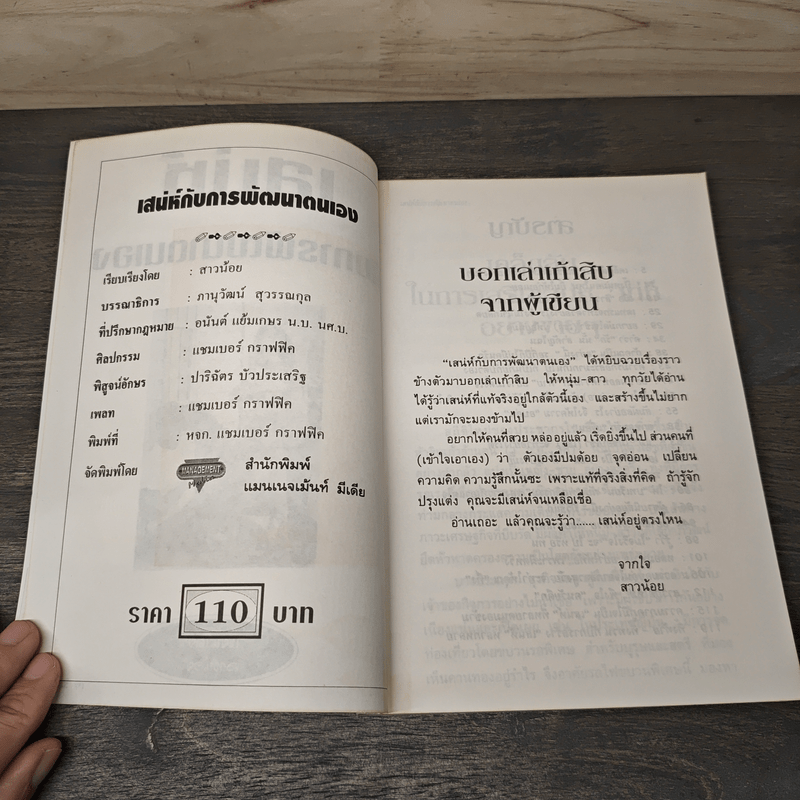 เสน่ห์กับการพัฒนาตนเอง
เรียบเรียงโดย : สาวน้อย
บรรณาธิการ : ภานุวัฒน์ สุวรรณกุล
ที่ปรึกษากฎหมาย : อนันต์ แย้มเกษร น.บ. นศ.บ.
ศิลปกรรม : แชมเบอร์ กราฟฟิค
พิสูจน์อักษร : ปาริฉัตร บัวประเสริฐ
เพลท : แชมเบอร์ กราฟฟิค
พิมพ์ที่ : หจก. แชมเบอร์ กราฟฟิค
จัดพิมพ์โดย MANAGEMENT สำนักพิมพ์
แมนเนจเม้นท์ มีเดีย
ราคา 110 บาท
บอกเล่าเก้าสิบ
จากผู้เขียน
"เสน่ห์กับการพัฒนาตนเอง" ได้หยิบฉวยเรื่องราว
ข้างตัวมาบอกเล่าเก้าสิบ ให้หนุ่ม-สาว ทุกวัยได้อ่าน
ได้รู้ว่าเสน่ห์ที่แท้จริงอยู่ใกล้ตัวนี้เอง และสร้างขึ้นไม่ยาก
แต่เรามักจะมองข้ามไป
อยากให้คนที่สวย หล่ออยู่แล้ว เริ่ดยิ่งขึ้นไป ส่วนคนที่
(เข้าใจเอาเอง) ว่า ตัวเองมีปมด้อย จุดอ่อน เปลี่ยน
ความคิด ความรู้สึกนั้นซะ เพราะแท้ที่จริงสิ่งที่คิด ถ้ารู้จัก
ปรุงแต่ง คุณจะมีเสน่ห์จนเหลือเชื่อ
อ่านเถอะ แล้วคุณจะรู้ว่า...... เสน่ห์อยู่ตรงไหน
จากใจ
สาวน้อย